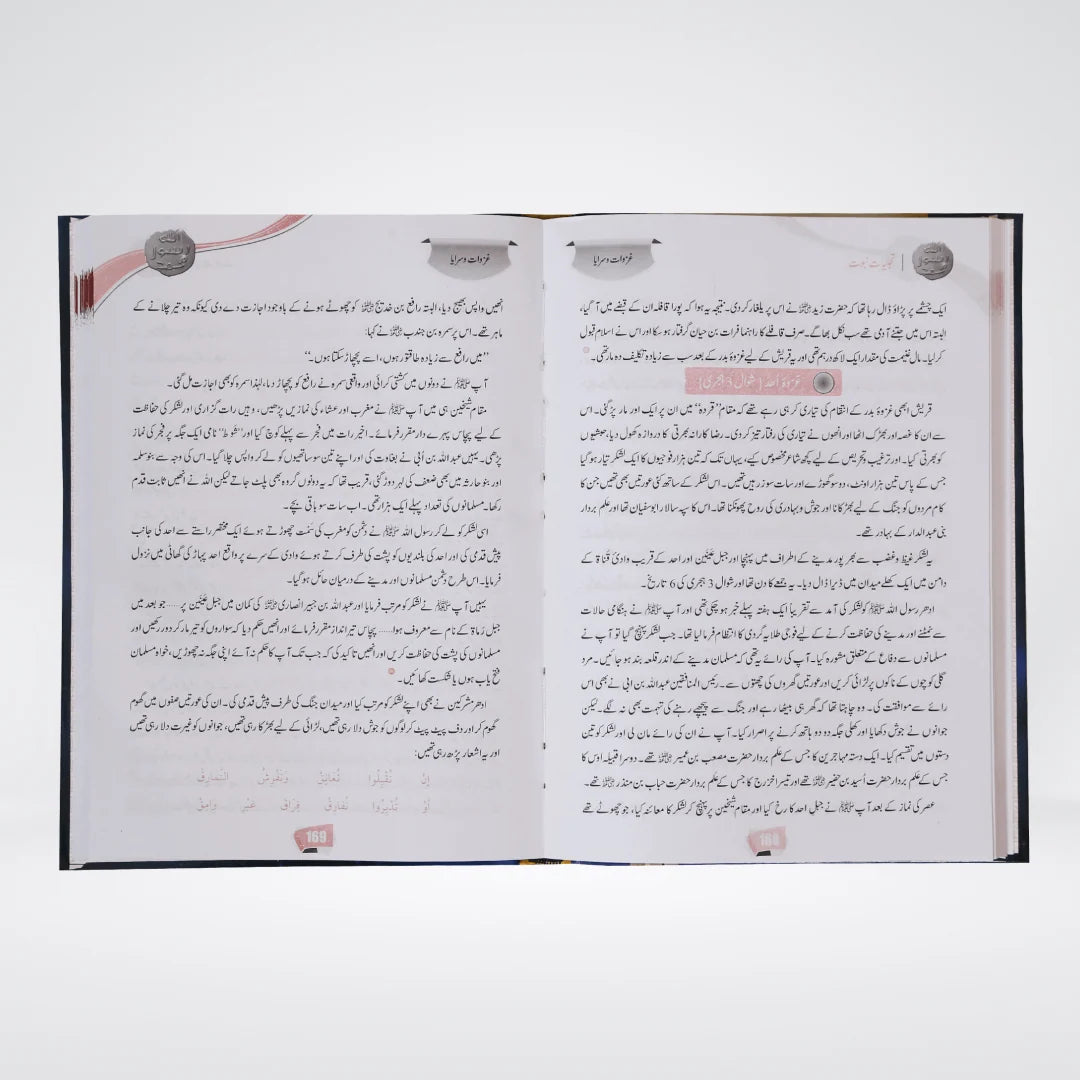 اللہ
رسول
محمد
تجلیات نبوت
غزوات و سرایا
ایک چشمے پر پڑاؤ ڈال رہا تھا کہ حضرت زید رضی اللہ عنہ نے اس پر یلغار کر دی۔ نتیجہ یہ ہوا کہ پورا قافلہ ان کے قبضے میں آ گیا،
البتہ اس میں جتنے آدمی تھے سب نکل بھاگے۔ صرف قافلے کا راہنما فرات بن حیان گرفتار ہو سکا اور اس نے اسلام قبول
کر لیا۔ مال غنیمت کی مقدار ایک لاکھ درہم تھی اور یہ قریش کے لیے غزوۂ بدر کے بعد سب سے زیادہ تکلیف دہ مار تھی۔
غزوۂ احد (شوال 3 ہجری)
قریش ابھی غزوۂ بدر کے انتقام کی تیاری کر ہی رہے تھے کہ مقام ”قردہ“ میں ان پر ایک اور مار پڑ گئی۔ اس
سے ان کا غصہ اور بھڑک اٹھا اور انھوں نے تیاری کی رفتار تیز کر دی۔ رضا کارانہ بھرتی کا دروازہ کھول دیا، حبشیوں
کو بھرتی کیا۔ اور ترغیب و تحریص کے لیے کچھ شاعر مخصوص کیے، یہاں تک کہ تین ہزار فوجیوں کا ایک لشکر تیار ہو گیا
جس کے پاس تین ہزار اونٹ، دو سو گھوڑے اور سات سو زرہیں تھیں۔ اس لشکر کے ساتھ کئی عورتیں بھی تھیں جن کا
کام مردوں کو جنگ کے لیے بھڑکانا اور جوش و بہادری کی روح پھونکنا تھا۔ اس کا سپہ سالار ابوسفیان تھا اور علم بردار
بنی عبدالدار کے بہادر تھے۔
یہ لشکر غیظ و غضب سے بھرپور مدینے کے اطراف میں پہنچا اور جبل عَیْنَیْن اور احد کے قریب وادیٔ قَنَاۃ کے
دامن میں ایک کھلے میدان میں ڈیرا ڈال دیا۔ یہ جمعے کا دن تھا اور شوال 3 ہجری کی 6 تاریخ۔
ادھر رسول اللہ ﷺ کو لشکر کی آمد سے تقریباً ایک ہفتہ پہلے خبر ہو چکی تھی اور آپ ﷺ نے ہنگامی حالات
سے نمٹنے اور مدینے کی حفاظت کرنے کے لیے فوجی طلایہ گردی کا انتظام فرما لیا تھا۔ جب لشکر پہنچ گیا تو آپ نے
مسلمانوں سے دفاع کے متعلق مشورہ کیا۔ آپ کی رائے یہ تھی کہ مسلمان مدینے کے اندر قلعہ بند ہو جائیں۔ مرد
گلی کوچوں کے ناکوں پر لڑائی کریں اور عورتیں گھروں کی چھتوں سے۔ رئیس المنافقین عبداللہ بن ابی نے بھی اس
رائے سے موافقت کی۔ وہ چاہتا تھا کہ گھر ہی بیٹھا رہے اور جنگ سے پیچھے رہنے کی تہمت بھی نہ لگے۔ لیکن
جوانوں نے جوش دکھایا اور کھلی جگہ دو دو ہاتھ کرنے پر اصرار کیا۔ آپ نے ان کی رائے مان لی اور لشکر کو تین
دستوں میں تقسیم کیا۔ ایک دستہ مہاجرین کا جس کے علم بردار حضرت مصعب بن عمیر رضی اللہ عنہ تھے۔ دوسرا قبیلہ اوس کا
جس کے علم بردار حضرت اُسید بن حضیر رضی اللہ عنہ تھے اور تیسرا خزرج کا جس کے علم بردار حضرت حباب بن منذر رضی اللہ عنہ تھے۔
عصر کی نماز کے بعد آپ ﷺ نے جبل احد کا رخ کیا اور مقام شیخین پر پہنچ کر لشکر کا معائنہ کیا، جو چھوٹے تھے
168
اللہ
رسول
محمد
غزوات و سرایا
انھیں واپس بھیج دیا، البتہ رافع بن خدیج رضی اللہ عنہ کو چھوٹے ہونے کے باوجود اجازت دے دی کیونکہ وہ تیر چلانے کے
ماہر تھے۔ اس پر سمرہ بن جندب رضی اللہ عنہ نے کہا:
”میں رافع سے زیادہ طاقتور ہوں، اسے پچھاڑ سکتا ہوں۔“
آپ ﷺ نے دونوں میں کشتی کرائی اور واقعی سمرہ نے رافع کو پچھاڑ دیا، لہٰذا سمرہ کو بھی اجازت مل گئی۔
مقام شیخین ہی میں آپ ﷺ نے مغرب اور عشاء کی نمازیں پڑھیں، وہیں رات گزاری اور لشکر کی حفاظت
کے لیے پچاس پہرے دار مقرر فرمائے۔ اخیر رات میں فجر سے پہلے کوچ کیا اور ”شوط“ نامی ایک جگہ پر فجر کی نماز
پڑھی۔ یہیں عبداللہ بن اُبی نے بغاوت کی اور اپنے تین سو ساتھیوں کو لے کر واپس چلا گیا۔ اس کی وجہ سے بنو سلمہ
اور بنو حارثہ میں بھی ضعف کی لہر دوڑ گئی، قریب تھا کہ یہ دونوں گروہ بھی پلٹ جاتے لیکن اللہ نے انھیں ثابت قدم
رکھا۔ مسلمانوں کی تعداد پہلے ایک ہزار تھی۔ اب سات سو باقی بچے۔
اسی لشکر کو لے کر رسول اللہ ﷺ نے دشمن کو مغرب کی سمت چھوڑتے ہوئے ایک مختصر راستے سے احد کی جانب
پیش قدمی کی اور احد کی بلندیوں کو پشت کی طرف کرتے ہوئے وادی کے سرے پر واقع احد پہاڑ کی گھاٹی میں نزول
فرمایا۔ اس طرح دشمن مسلمانوں اور مدینے کے درمیان حائل ہو گیا۔
یہیں آپ ﷺ نے لشکر کو مرتب فرمایا اور عبداللہ بن جبیر انصاری رضی اللہ عنہ کی کمان میں جبل عَیْنَیْن پر ..... جو بعد میں
جبل رُماۃ کے نام سے معروف ہوا ..... پچاس تیر انداز مقرر فرمائے اور انھیں حکم دیا کہ سواروں کو تیر مار کر دور رکھیں اور
مسلمانوں کی پشت کی حفاظت کریں اور انھیں تاکید کی کہ جب تک آپ کا حکم نہ آئے اپنی جگہ نہ چھوڑیں، خواہ مسلمان
فتح یاب ہوں یا شکست کھائیں۔
ادھر مشرکین نے بھی اپنے لشکر کو مرتب کیا اور میدان جنگ کی طرف پیش قدمی کی۔ ان کی عورتیں صفوں میں گھوم
گھوم کر اور دف پیٹ پیٹ کر لوگوں کو جوش دلا رہی تھیں، لڑائی کے لیے بھڑکا رہی تھیں، جوانوں کو غیرت دلا رہی تھیں
اور یہ اشعار پڑھ رہی تھیں:
إِنْ تُقْبِلُوا نُعَانِقْ وَنَفْرِشُ النَّمَارِقْ
أَوْ تُدْبِرُوا نُفَارِقْ فِرَاقَ غَيْرَ وَامِقْ
169